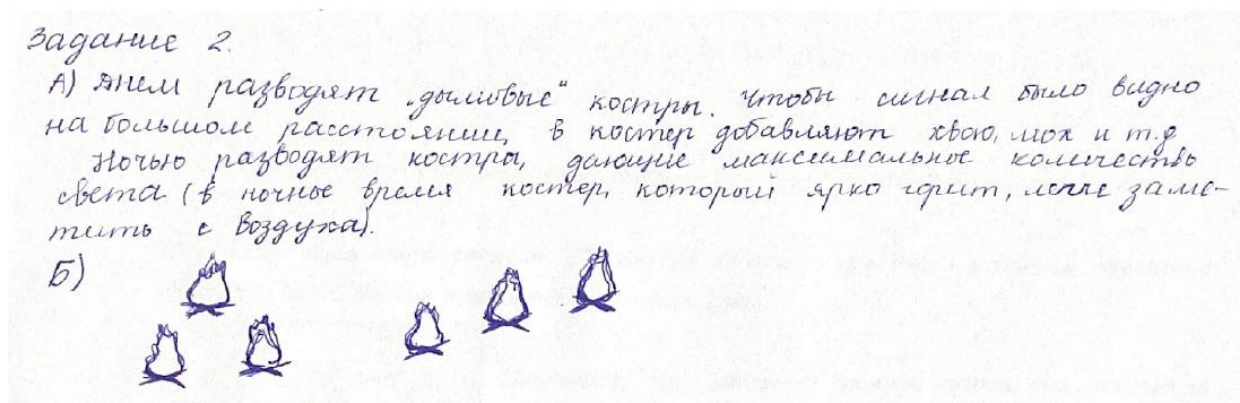 Задание 2.
А) Днем разводят „дымовые“ костры. Чтобы сигнал было видно
на большом расстоянии, в костер добавляют хвою, мох и т.д
Ночью разводят костры, дающие максимальное количество
света (в ночное время костер, который ярко горит, легче заме-
тить с воздуха).
Б)